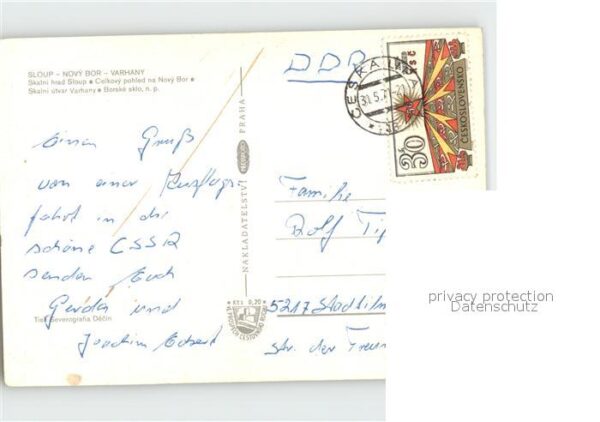 SLOUP - NOVÝ BOR - VARHANY
Skalní hrad Sloup • Celkový pohled na Nový Bor •
Skalní útvar Varhany • Borské sklo, n. p.
Einen Gruß
von einer Ausflugs-
fahrt in die
schöne CSSR
senden Euch
Gerda und
Joachim Eckert
Tisk Severografia Děčín
NAKLADATELSTVÍ
PRAHA
Kčs 0,20
DDR
ČESKÁ
31.5.
30
ČESKOSLOVENSKO
Familie
Rolf
5217 Stadtilm
Str. der
privacy protection
Datenschutz